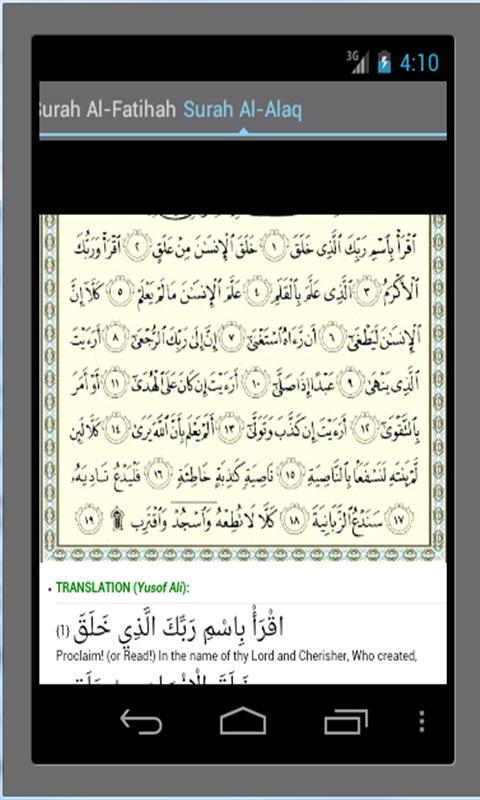 3G 4:10
Surah Al-Fatihah Surah Al-Alaq
ٱقۡرَأۡ بِٱسۡمِ رَبِّكَ ٱلَّذِى خَلَقَ ١ خَلَقَ ٱلۡإِنسَـٰنَ مِنۡ عَلَقٍ ٢ ٱقۡرَأۡ وَرَبُّكَ
ٱلۡأَكۡرَمُ ٣ ٱلَّذِى عَلَّمَ بِٱلۡقَلَمِ ٤ عَلَّمَ ٱلۡإِنسَـٰنَ مَا لَمۡ يَعۡلَمۡ ٥ كَلَّآ إِنَّ
ٱلۡإِنسَـٰنَ لَيَطۡغَىٰٓ ٦ أَن رَّءَاهُ ٱسۡتَغۡنَىٰٓ ٧ إِنَّ إِلَىٰ رَبِّكَ ٱلرُّجۡعَىٰٓ ٨ أَرَءَيۡتَ
ٱلَّذِى يَنۡهَىٰ ٩ عَبۡدًا إِذَا صَلَّىٰٓ ١٠ أَرَءَيۡتَ إِن كَانَ عَلَى ٱلۡهُدَىٰٓ ١١ أَوۡ أَمَرَ
بِٱلتَّقۡوَىٰٓ ١٢ أَرَءَيۡتَ إِن كَذَّبَ وَتَوَلَّىٰٓ ١٣ أَلَمۡ يَعۡلَم بِأَنَّ ٱللَّهَ يَرَىٰ ١٤ كَلَّا لَئِن
لَّمۡ يَنتَهِ لَنَسۡفَعَۢا بِٱلنَّاصِيَةِ ١٥ نَاصِيَةٍ كَـٰذِبَةٍ خَاطِئَةٍ ١٦ فَلۡيَدۡعُ نَادِيَهُۥ
١٧ سَنَدۡعُ ٱلزَّبَانِيَةَ ١٨ كَلَّا لَا تُطِعۡهُ وَٱسۡجُدۡ وَٱقۡتَرِب ۩ ١٩
• TRANSLATION (Yusof Ali):
(1) اقْرَأْ بِاسْمِ رَبِّكَ الَّذِي خَلَقَ
Proclaim! (or Read!) In the name of thy Lord and Cherisher, Who created,